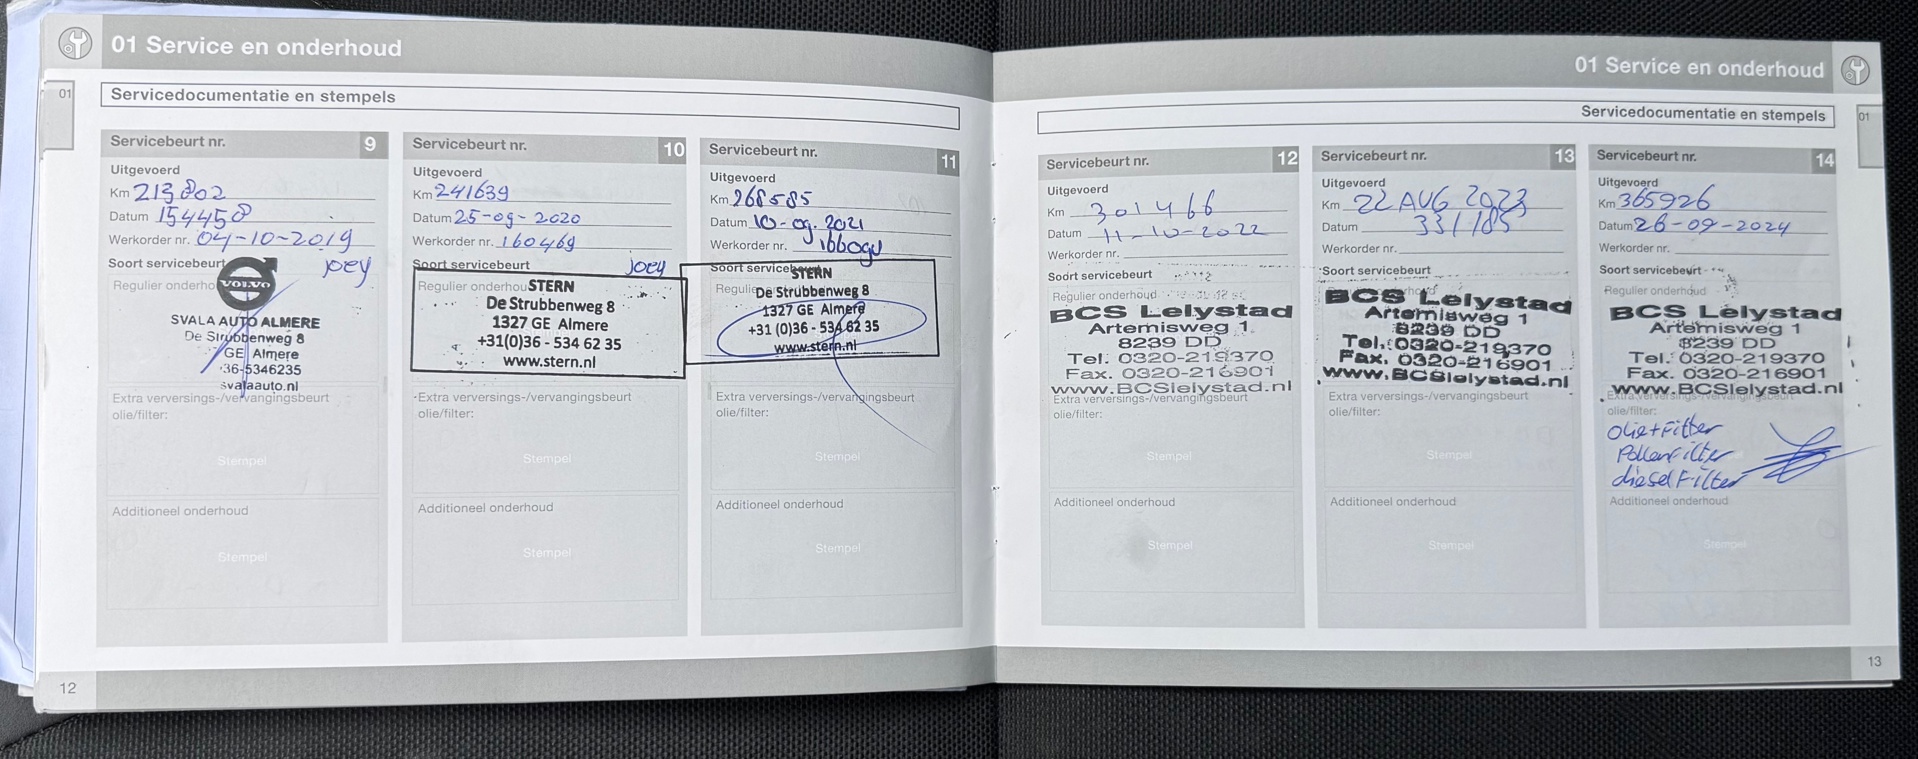 01 Service en onderhoud
01
Servicedocumentatie en stempels
Servicebeurt nr. 9
Uitgevoerd
Km 213802
Datum 154458
Werkorder nr. 04-10-2019
Soort servicebeurt joey
Regulier onderhoud
VOLVO
SVALA AUTO ALMERE
De Strubbenweg 8
GE Almere
36-5346235
svalaauto.nl
Extra verversings-/vervangingsbeurt
olie/filter:
Stempel
Additioneel onderhoud
Stempel
Servicebeurt nr. 10
Uitgevoerd
Km 241639
Datum 25-09-2020
Werkorder nr. 160469
Soort servicebeurt joey
Regulier onderhou
STERN
De Strubbenweg 8
1327 GE Almere
+31(0)36 - 534 62 35
www.stern.nl
Extra verversings-/vervangingsbeurt
olie/filter:
Stempel
Additioneel onderhoud
Stempel
Servicebeurt nr. 11
Uitgevoerd
Km 268585
Datum 10-09-2021
Werkorder nr.
Soort servicebeurt
STERN
Regulie
De Strubbenweg 8
1327 GE Almere
+31 (0)36 - 534 62 35
www.stern.nl
Extra verversings-/vervangingsbeurt
olie/filter:
Stempel
Additioneel onderhoud
Stempel
12
01 Service en onderhoud
Servicedocumentatie en stempels
01
Servicebeurt nr. 12
Uitgevoerd
Km 301466
Datum 11-10-2022
Werkorder nr.
Soort servicebeurt
Regulier onderhoud
BCS Lelystad
Artemisweg 1
8239 DD
Tel. 0320-219370
Fax. 0320-216901
www.BCSlelystad.nl
Extra verversings-/vervangingsbeurt
olie/filter:
Stempel
Additioneel onderhoud
Stempel
Servicebeurt nr. 13
Uitgevoerd
Km 22 AUG 2023
Datum 331185
Werkorder nr.
Soort servicebeurt
BCS Lelystad
Artemisweg 1
8239 DD
Tel. 0320-219370
Fax. 0320-216901
www.BCSlelystad.nl
Extra verversings-/vervangingsbeurt
olie/filter:
Stempel
Additioneel onderhoud
Stempel
Servicebeurt nr. 14
Uitgevoerd
Km 365926
Datum 26-09-2024
Werkorder nr.
Soort servicebeurt
Regulier onderhoud
BCS Lelystad
Artemisweg 1
8239 DD
Tel. 0320-219370
Fax. 0320-216901
www.BCSlelystad.nl
Extra verversings-/vervangingsbeurt
olie/filter:
Olie+Filter
PollenFilter
dieselFilter
Additioneel onderhoud
Stempel
13